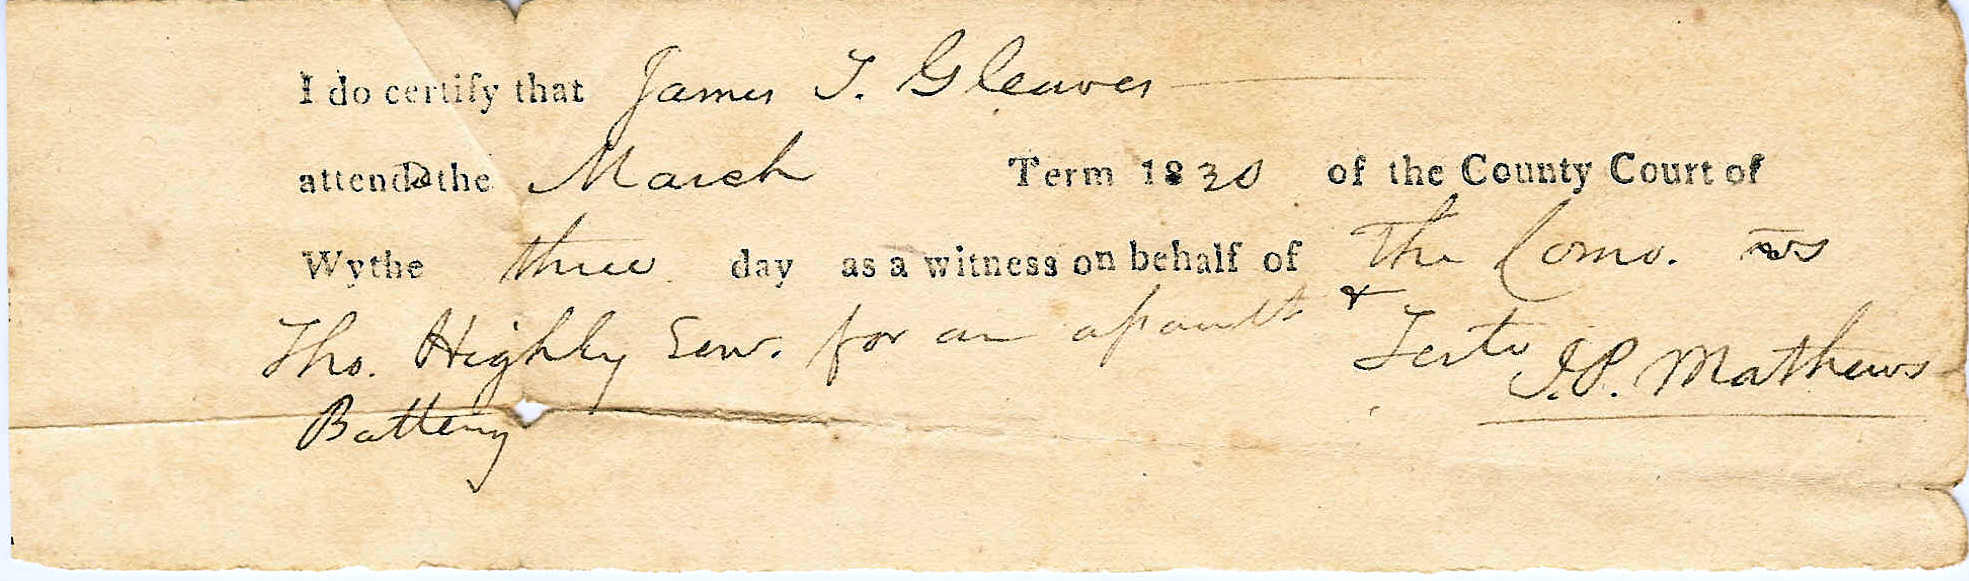 I do certify that James T. Gleaves
attend the March Term 1830 of the County Court of
Wythe three day as a witness on behalf of The Como. vs
Tho. Highly Senr. for an assault & Teste J.P. Mathews
Battery